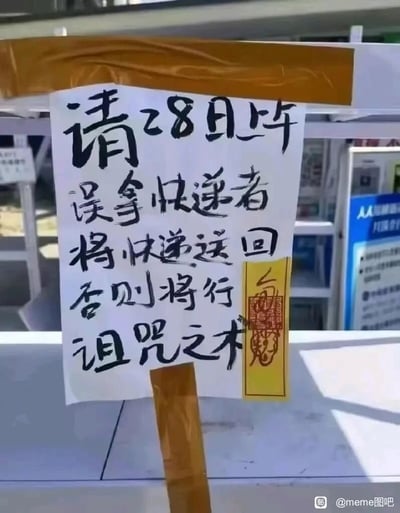 请28日上午
误拿快递者
将快递送回
否则将行
诅咒之术
@meme图吧